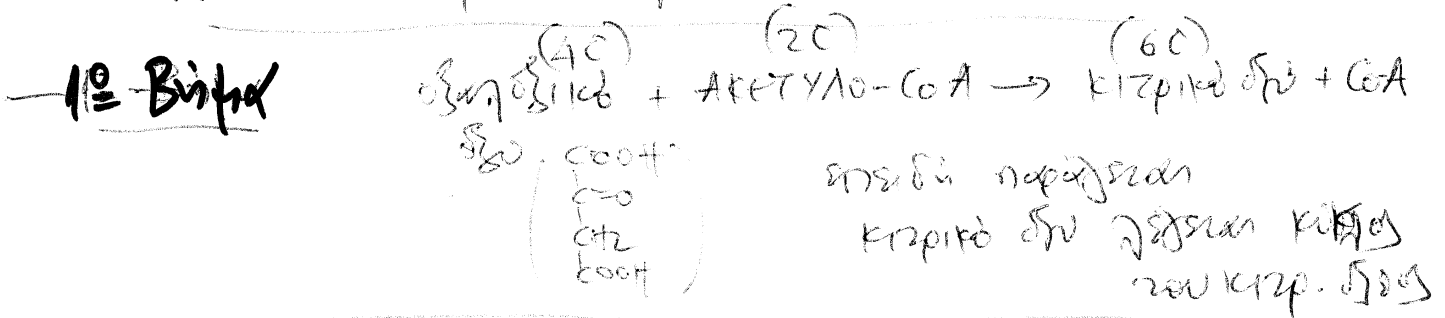 (4C) (2C) (6C)
1º Βήμα οξαλοξικό + ΑΚΕΤΥΛΟ-CoA → κιτρικό οξύ + CoA
οξύ
COOH
C=O
CH2
COOH
επειδή παράγεται
κιτρικό οξύ λέγεται κύκλος
του κιτρ. οξέος